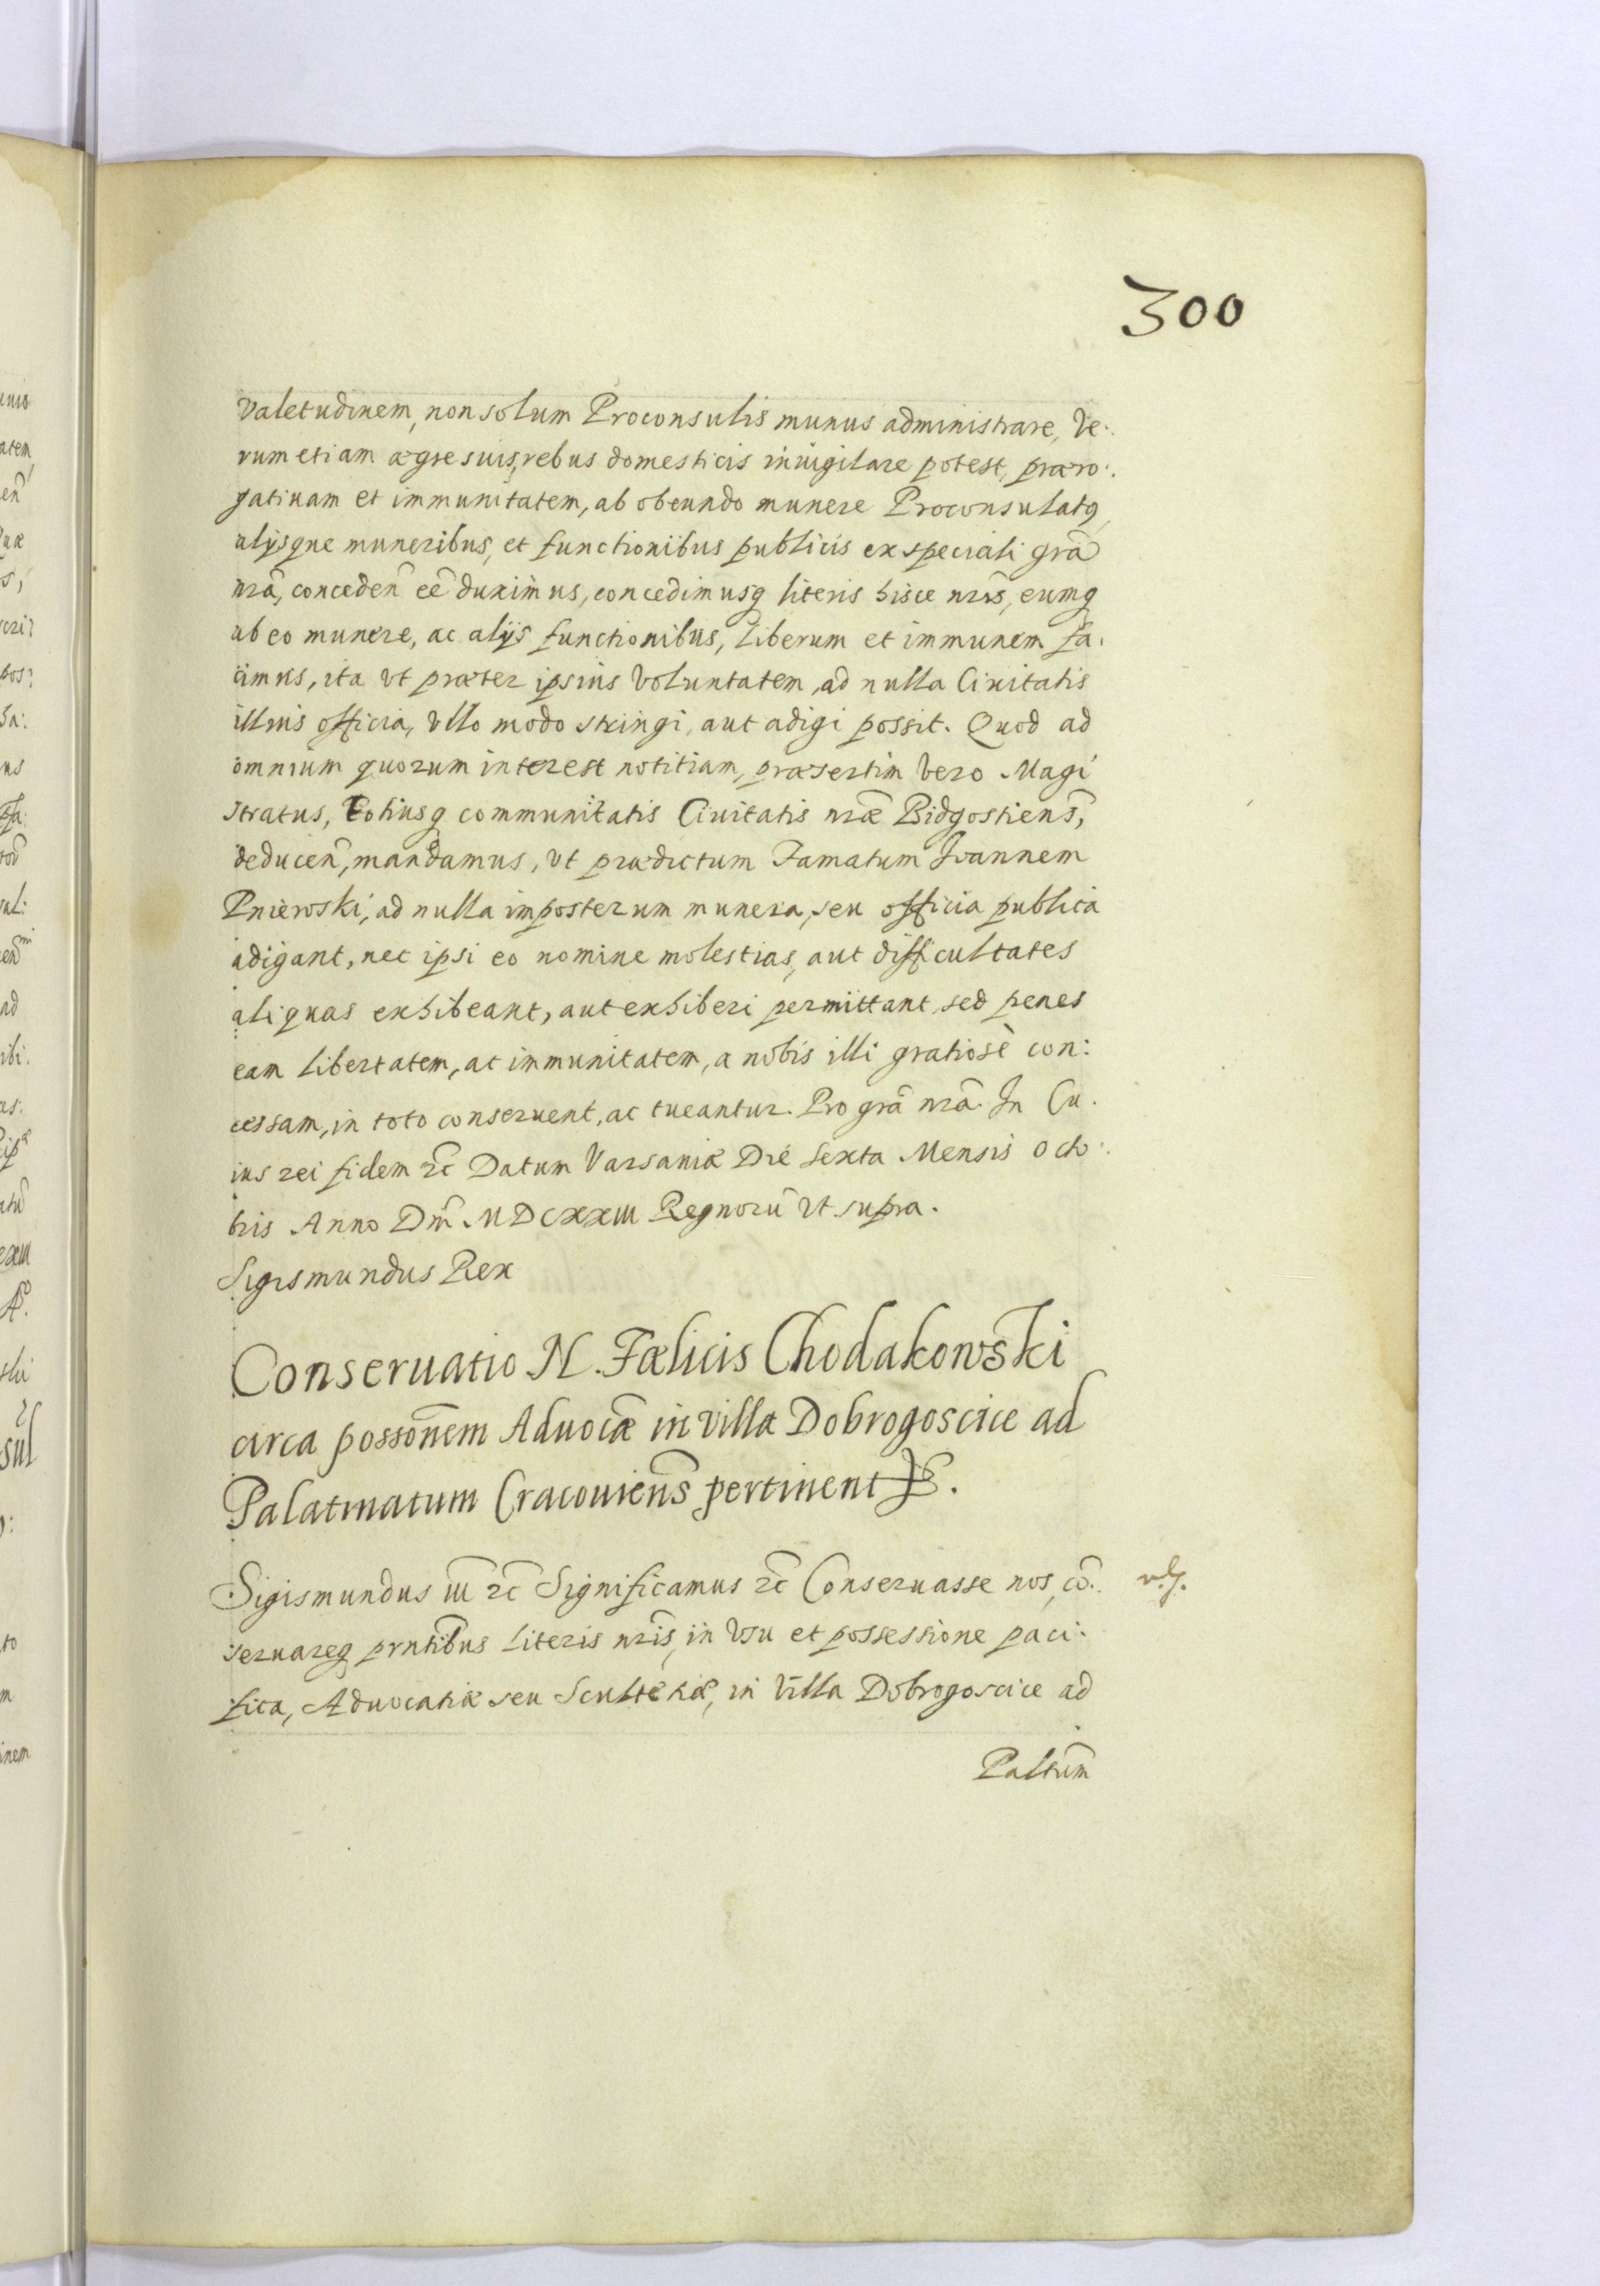 300
valetudinem, non solum Proconsulis munus administrare, Ve:
rum etiam ægre suis, rebus domesticis inuigilare potest, præro:
gatiuam et immunitatem, ab obeundo munere Proconsulatq,
alijsque muneribus, et functionibus publicis ex speciali grã
nrã, conceden̄ eē duximus, concedimusq literis hisce nr̄is, eumq
ab eo munere, ac alijs functionibus, liberum et immunem fa:
cimus, ita vt præter ipsius voluntatem, ad nulla Ciuitatis
illius officia, vllo modo stringi, aut adigi possit. Quod ad
omnium quorum interest notitiam, præsertim vero Magi
stratus, totiusq communitatis Ciuitatis nræ Bidgostiens̄,
deducen̄, mandamus, vt prædictum Famatum Ioannem
Pniewski, ad nulla imposterum munera, seu officia publica
adigant, nec ipsi eo nomine molestias, aut difficultates
aliquas exhibeant, aut exhiberi permittant, sed penes
eam libertatem, ac immunitatem, a nobis illi gratiosè con:
cessam, in toto conseruent, ac tueantur. Pro grã nrã. In Cu:
ius rei fidem &c̄ Datum Varsauiæ Die sexta Mensis Octo:
bris Anno Dn̄i MDCXXIII Regnorū vt supra.
Sigismundus Rex
Conseruatio N. Fælicis Chodakowski
circa possoñem Aduocãe in villa Dobrogoscice ad
Palatinatum Cracouiens̄ pertinent
Sigismundus III &c̄ Significamus &c̄ Conseruasse nos, cō:
seruareq prntibus literis nris, in vsu et possessione paci:
fica, Aduocatiæ seu Scultetiæ, in Villa Dobrogoscice ad
Paltum̄